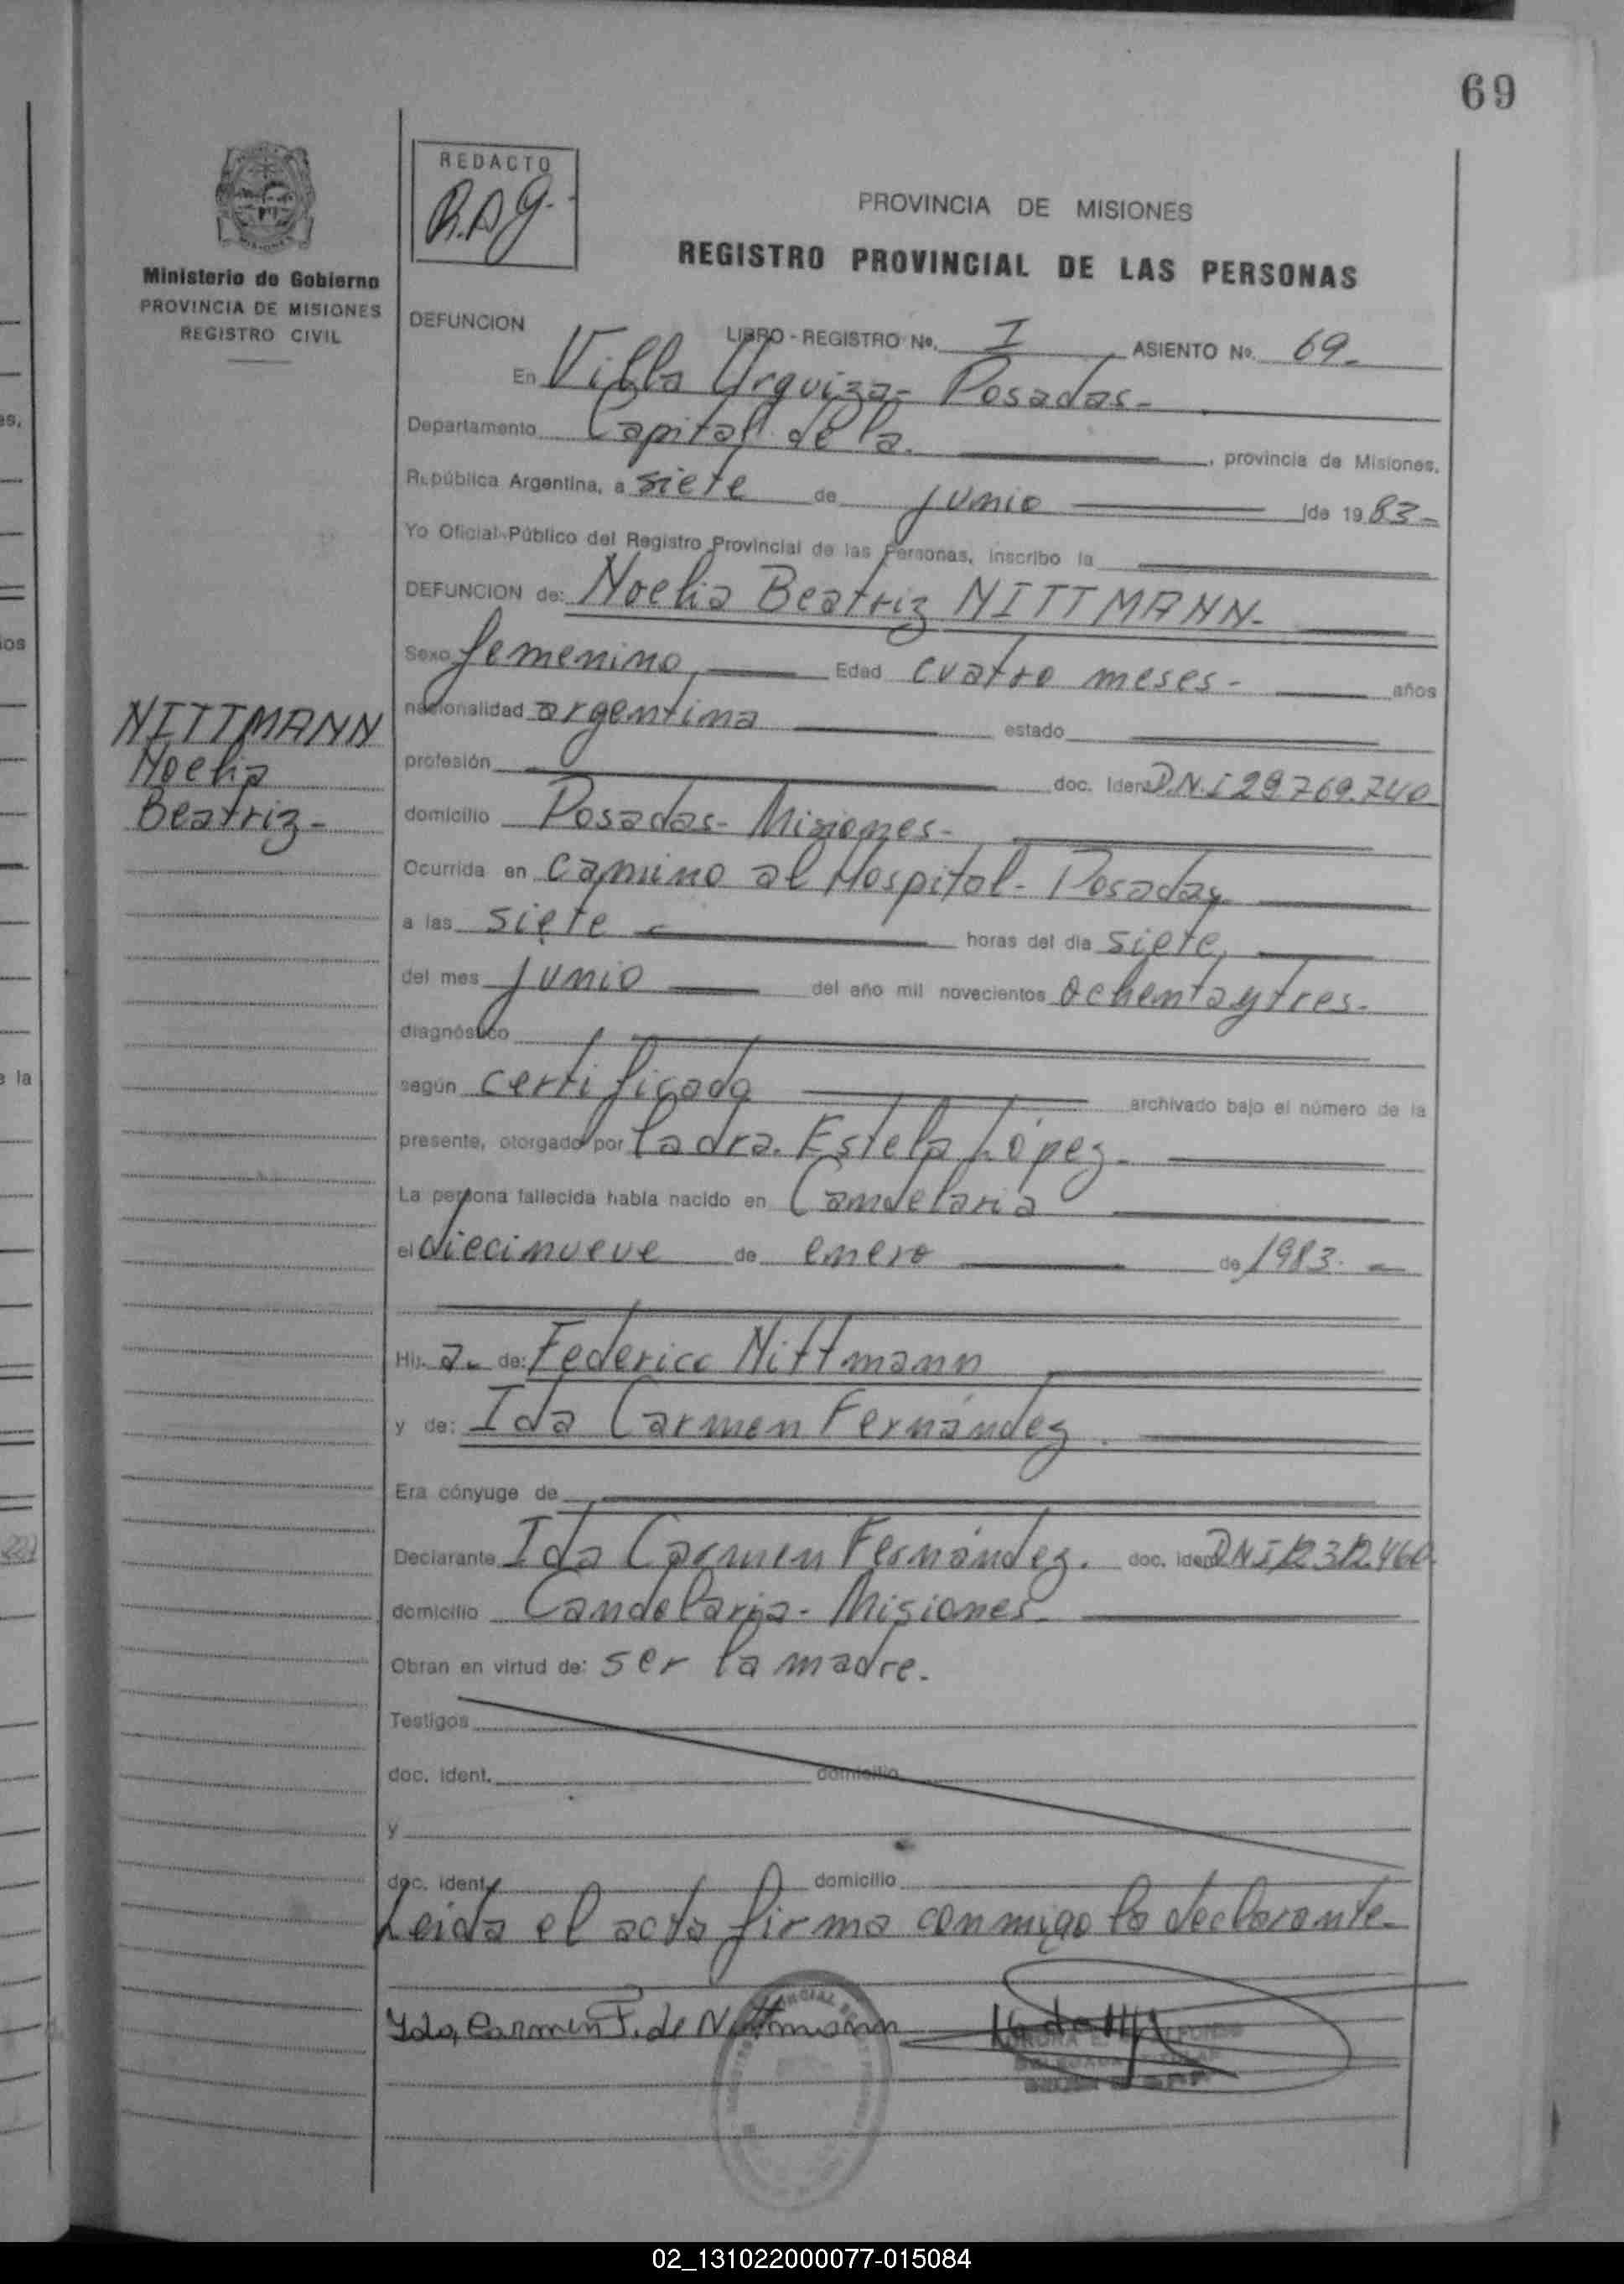 69
REDACTO
R.A.G.-
Ministerio de Gobierno
PROVINCIA DE MISIONES
REGISTRO CIVIL
PROVINCIA DE MISIONES
REGISTRO PROVINCIAL DE LAS PERSONAS
DEFUNCION LIBRO - REGISTRO Nº. I ASIENTO Nº. 69-
En Villa Urquiza- Posadas-
Departamento Capital de la. , provincia de Misiones,
República Argentina, a siete de junio de 1983-
Yo Oficial Público del Registro Provincial de las Personas, inscribo la
DEFUNCION de: Noelia Beatriz NITTMANN-
Sexo femenino, Edad cuatro meses- años
nacionalidad argentina estado
profesión doc. Ident. D.N.I 29.769.740
domicilio Posadas- Misiones-
Ocurrida en camino al Hospital- Posadas,
a las siete horas del día siete,
del mes junio del año mil novecientos ochentaytres-
diagnóstico
según certificado archivado bajo el número de la
presente, otorgado por la dra. Estela López-
La persona fallecida había nacido en Candelaria
el diecinueve de enero de 1983.-
Hij a- de: Federico Nittmann
y de: Ida Carmen Fernández.
Era cónyuge de
Declarante Ida Carmen Fernández. doc. ident. DNI 12.312.460.
domicilio Candelaria- Misiones-
Obran en virtud de: ser la madre.
Testigos
doc. ident. domicilio
y
doc. ident. domicilio
Leida el acta firma conmigo la declarante-
Ida, Carmen F. de Nittmann
NITTMANN
Noelia
Beatriz-
02_131022000077-015084